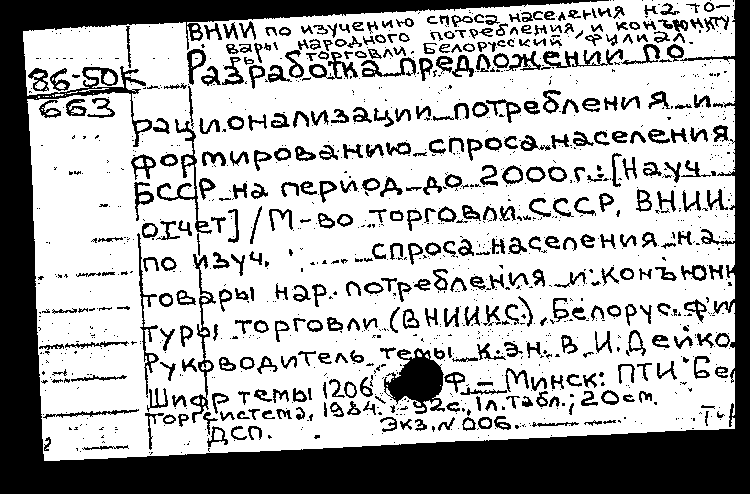 ВНИИ по изучению спроса населения на то-
вары народного потребления и конъюнкту-
ры торговли. Белорусский филиал.
86-50К
663
Разработка предложений по
рационализации потребления и
формированию спроса населения
БССР на период до 2000г.: [Науч.
отчет] / М-во торговли СССР, ВНИИ
по изуч. спроса населения на
товары нар. потребления и конъюнк
туры торговли (ВНИИКС), Белорус. фи
Руководитель темы к.э.н. В.И. Дейко
Шифр темы 1206 Ф. – Минск: ПТИ Бе
торгсистема, 1984. - 92с., 1л. табл.; 20см.
ДСП. Экз. N 006.